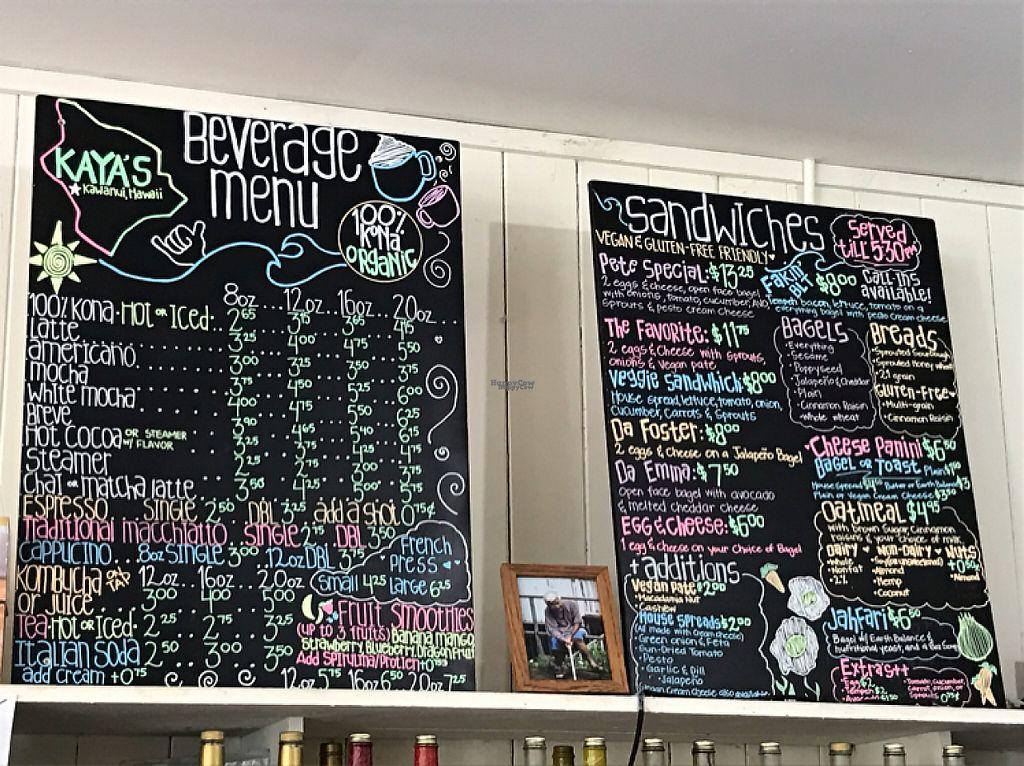 KAYA'S
Kawanui, Hawaii
Beverage
menu
100%
Kona
ORGANIC
8oz 12oz 16oz 20oz
100% Kona · Hot or Iced 2.65 3.15 3.65 4.15
Latte 3.25 4.00 4.75 5.50
americano 3.00
mocha 3.75 4.50 5.25 6.00
White mocha 4.00 4.75 5.50 6.25
Breve 3.90 4.65 5.40 6.15
Hot Cocoa OR STEAMER W/ FLAVOR
Steamer 2.25 2.75 3.00
Chai or matcha latte 3.50
ESPRESSO SINGLE 2.50 DBL 3.25 add a shot 0.75¢
Traditional macchiatto single 2.75 DBL 3.50
CAPPUCINO... 8oz SINGLE 3.00 12oz DBL 3.75
French
Press
Small 4.25 Large 6.25
Kombucha ON TAP
or Juice
12oz 16oz 20oz
3.00 4.00 5.00
Tea · Hot or Iced 2.25 2.75
Italian Soda 2.50 3.00 3.50
add cream +0.75
Fruit Smoothies
(up to 3 fruits) Banana mango
Strawberry, Blueberry, Dragonfruit
Add Spirulina/Protien +0
12oz 5.75 16oz 6.50 20oz 7.25
Sandwiches
Served
till 5:30pm
VEGAN & GLUTEN-FREE FRIENDLY
Pete Special: $13.25
2 eggs & cheese, open face bagel
with onions, tomato, cucumber, AVO
Sprouts & pesto cream cheese
Fakin' BLT $8.00
Tempeh bacon, lettuce, tomato on a
everything bagel with pesto cream cheese
Call ins
available!
The Favorite: $11.75
2 eggs & Cheese with Sprouts,
onions & Vegan pate
Veggie Sandwhich: $8.00
House spread, lettuce, tomato, onion,
Cucumber, Carrots & Sprouts
Bagels
· Everything
· Sesame
· Poppyseed
· Jalapeño & Cheddar
· Plain
· Cinnamon Raisin
· Whole wheat
Breads
· Sprouted Sourdough
· Sprouted honey wheat
· 21 grain
Gluten-Free
· Multi-grain
· Cinnamon Raisin
Da Foster: $8.00
2 eggs & cheese on a Jalapeño Bagel
Da Emma: $7.50
Open face bagel with avocado
& melted cheddar cheese
Egg & Cheese: $6.00
1 egg & cheese on your choice of Bagel
· Cheese Panini $6.50
Bagel or Toast Plain
House Spread Butter or Earth Balance
Plain or Vegan Cream Cheese $3.00
Oatmeal $4.95
with brown Sugar, Cinnamon,
raisins & your choice of milk
Dairy
· Whole
· Nonfat
· 2%
Non-Dairy
· Hemp
· Coconut
Nuts
+0.50
· Almond
+ additions
Vegan Pate $2.00
· Macadamia Nut
· Cashew
House Spreads $2.00
(All made with Cream cheese)
· Green onion & Feta
· Sun-Dried Tomato
· Pesto
· Garlic & Dill
· Jalapeño
Vegan Cream Cheese also available
Jahfari $6.50
Bagel w/ Earth Balance &
Extras++
· Egg $2
· Tempeh $2
· Avocado $1.50
· Tomato, Cucumber,
Carrot, Onion, or
Sprouts 0.75¢
HappyCow